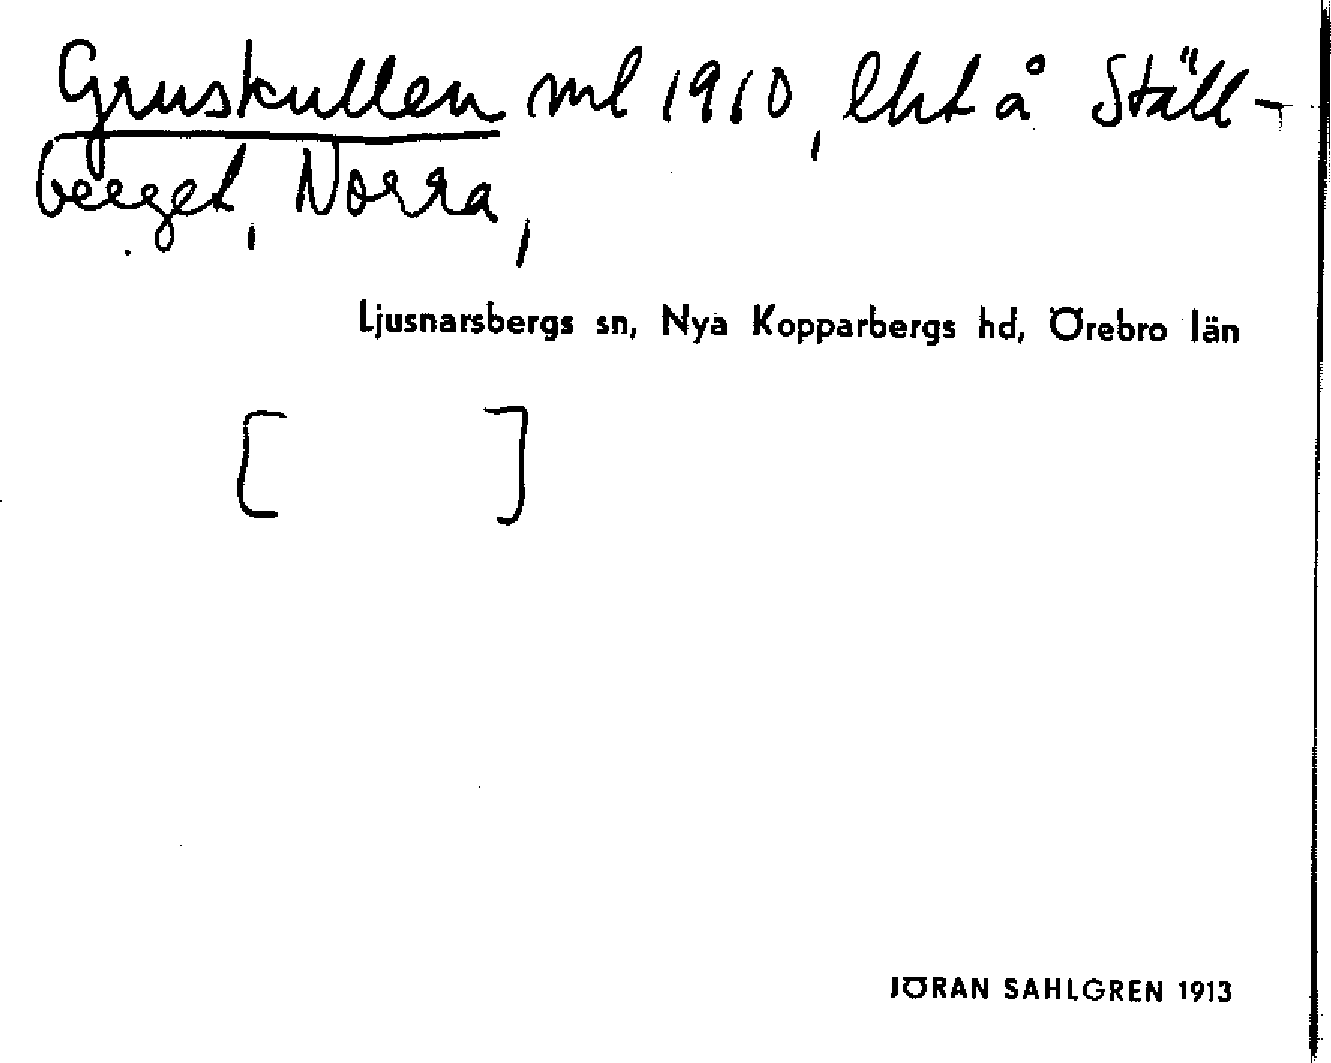 Gruskullen ml 1910, lht å Ställ-
berget, Norra,
Ljusnarsbergs sn, Nya Kopparbergs hd, Örebro län
[ ]
JÖRAN SAHLGREN 1913